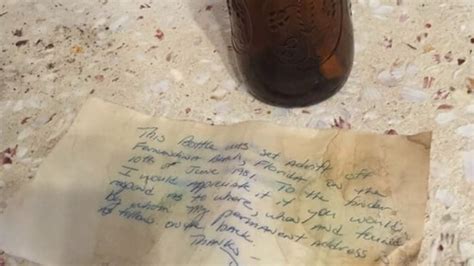 This Bottle was set adrift off
Fernandina Beach, Florida on the
10th of June 1981. To the finder
I would appreciate it if you would
respond as to where, when and found
By whom. My permanent address is
As follows on the back.
Thanks -